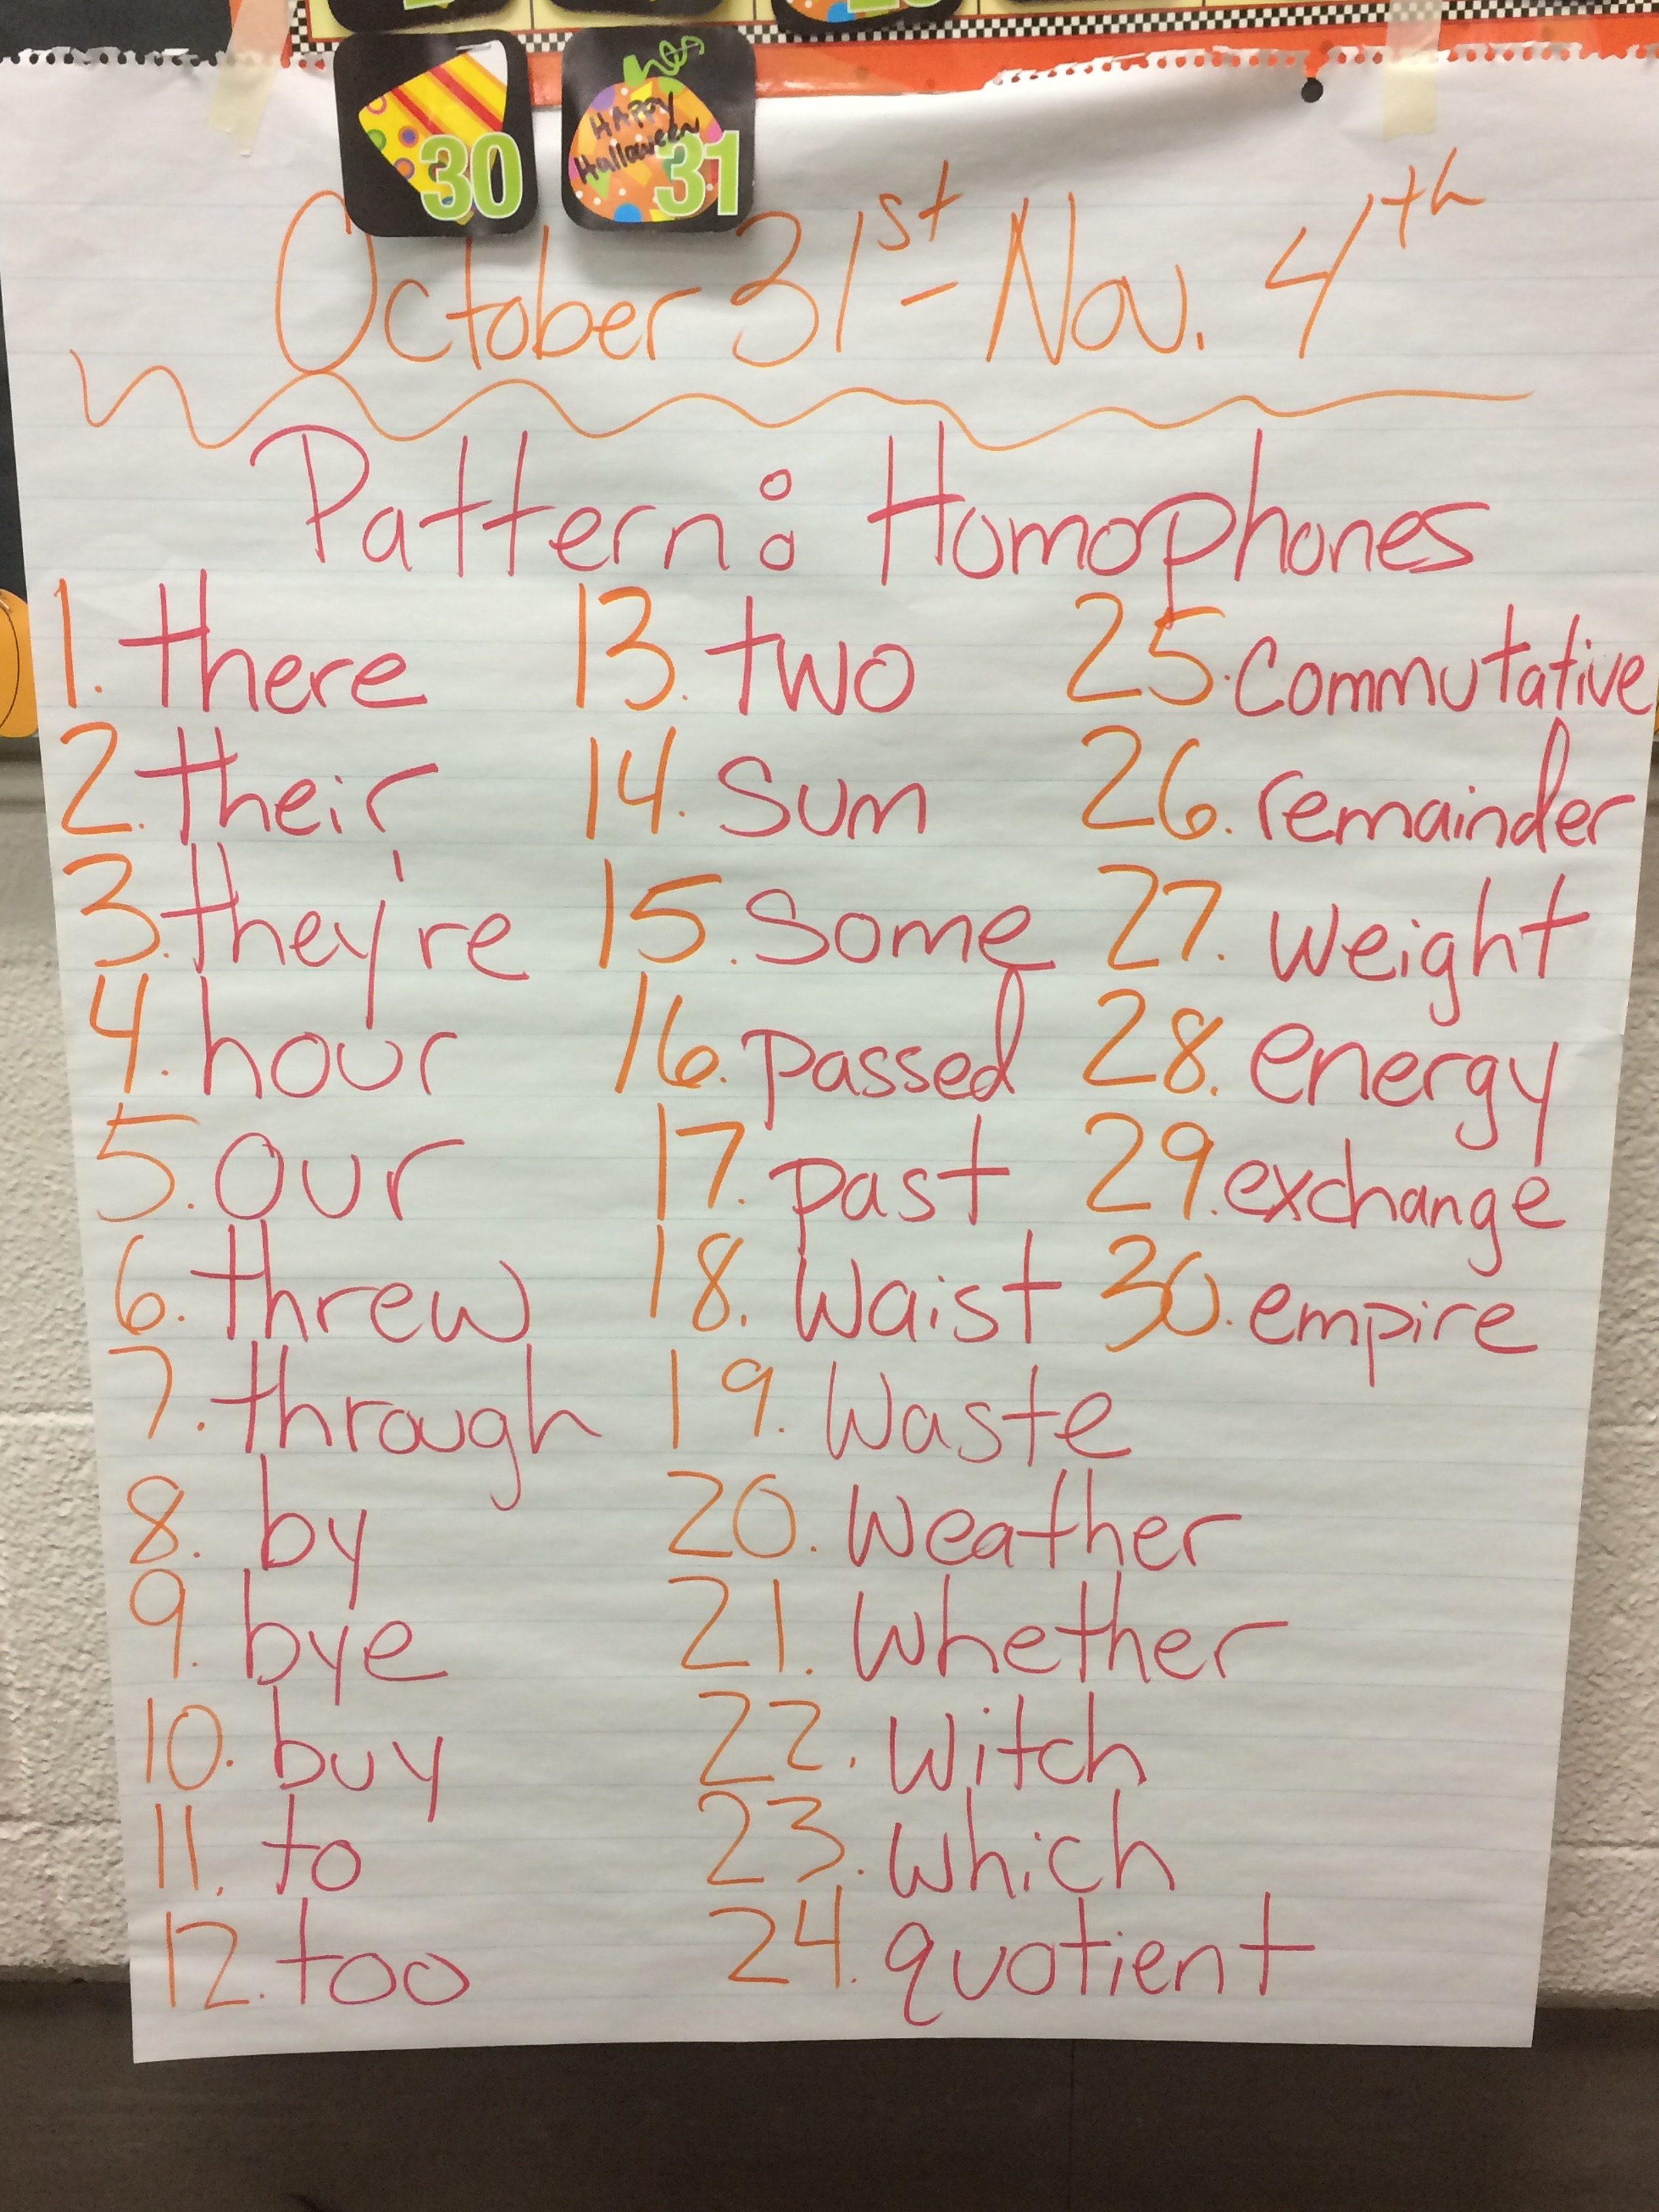 30
31
HAPPY
Halloween
October 31st - Nov. 4th
Pattern: Homophones
1. there
2. their
3. they're
4. hour
5. our
6. threw
7. through
8. by
9. bye
10. buy
11. to
12. too
13. two
14. sum
15. some
16. passed
17. past
18. waist
19. waste
20. weather
21. whether
22. witch
23. which
24. quotient
25. commutative
26. remainder
27. weight
28. energy
29. exchange
30. empire